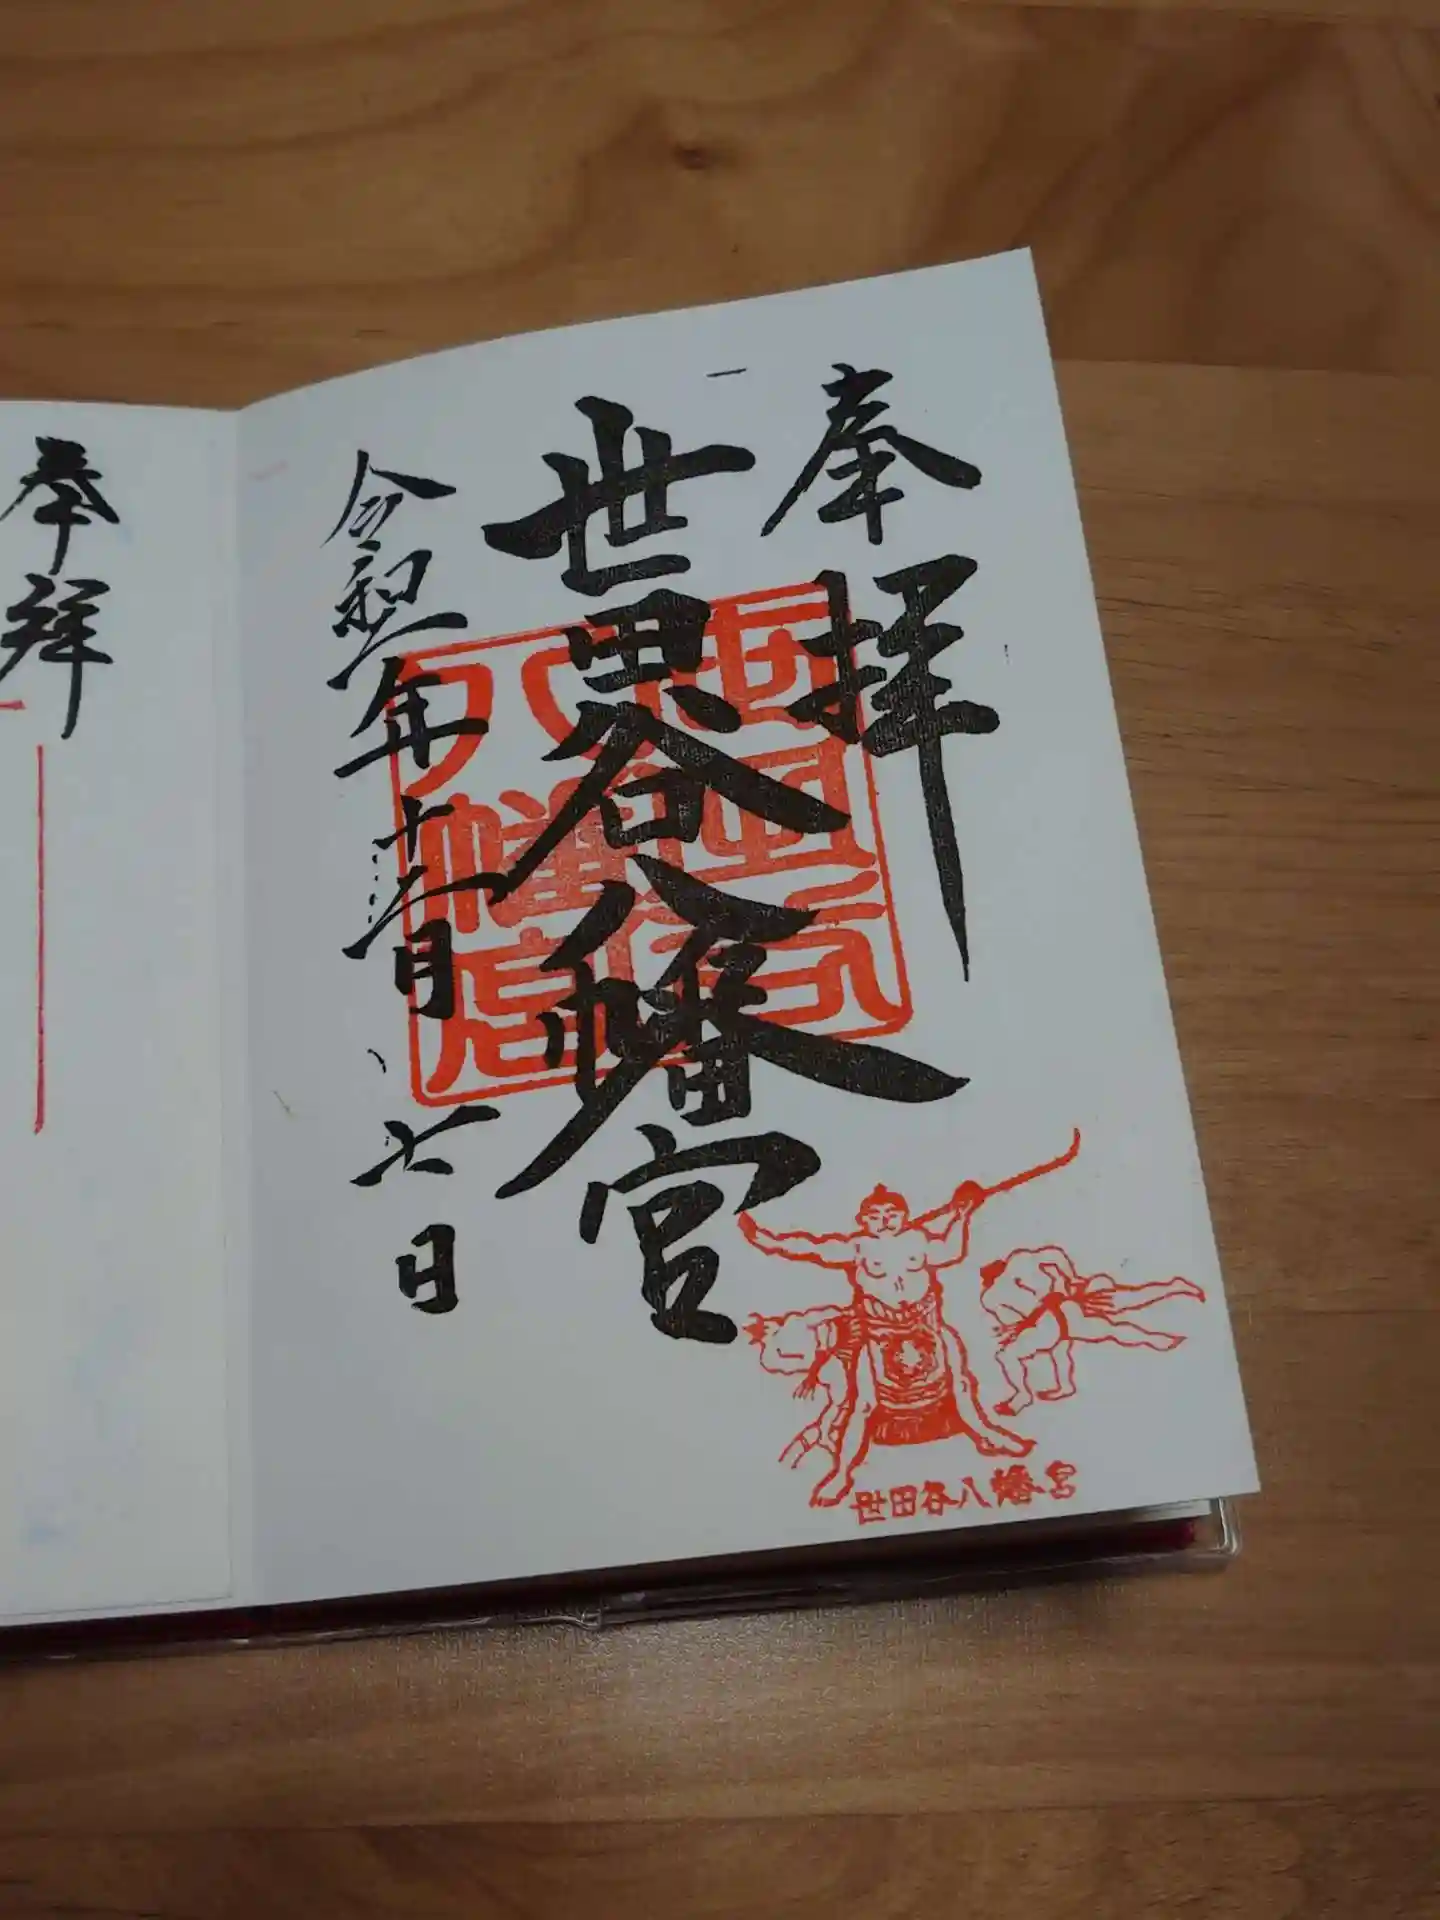 奉拝
世田谷八幡宮
令和二年
七日
世田谷
八幡宮
世田谷八幡宮
奉拝